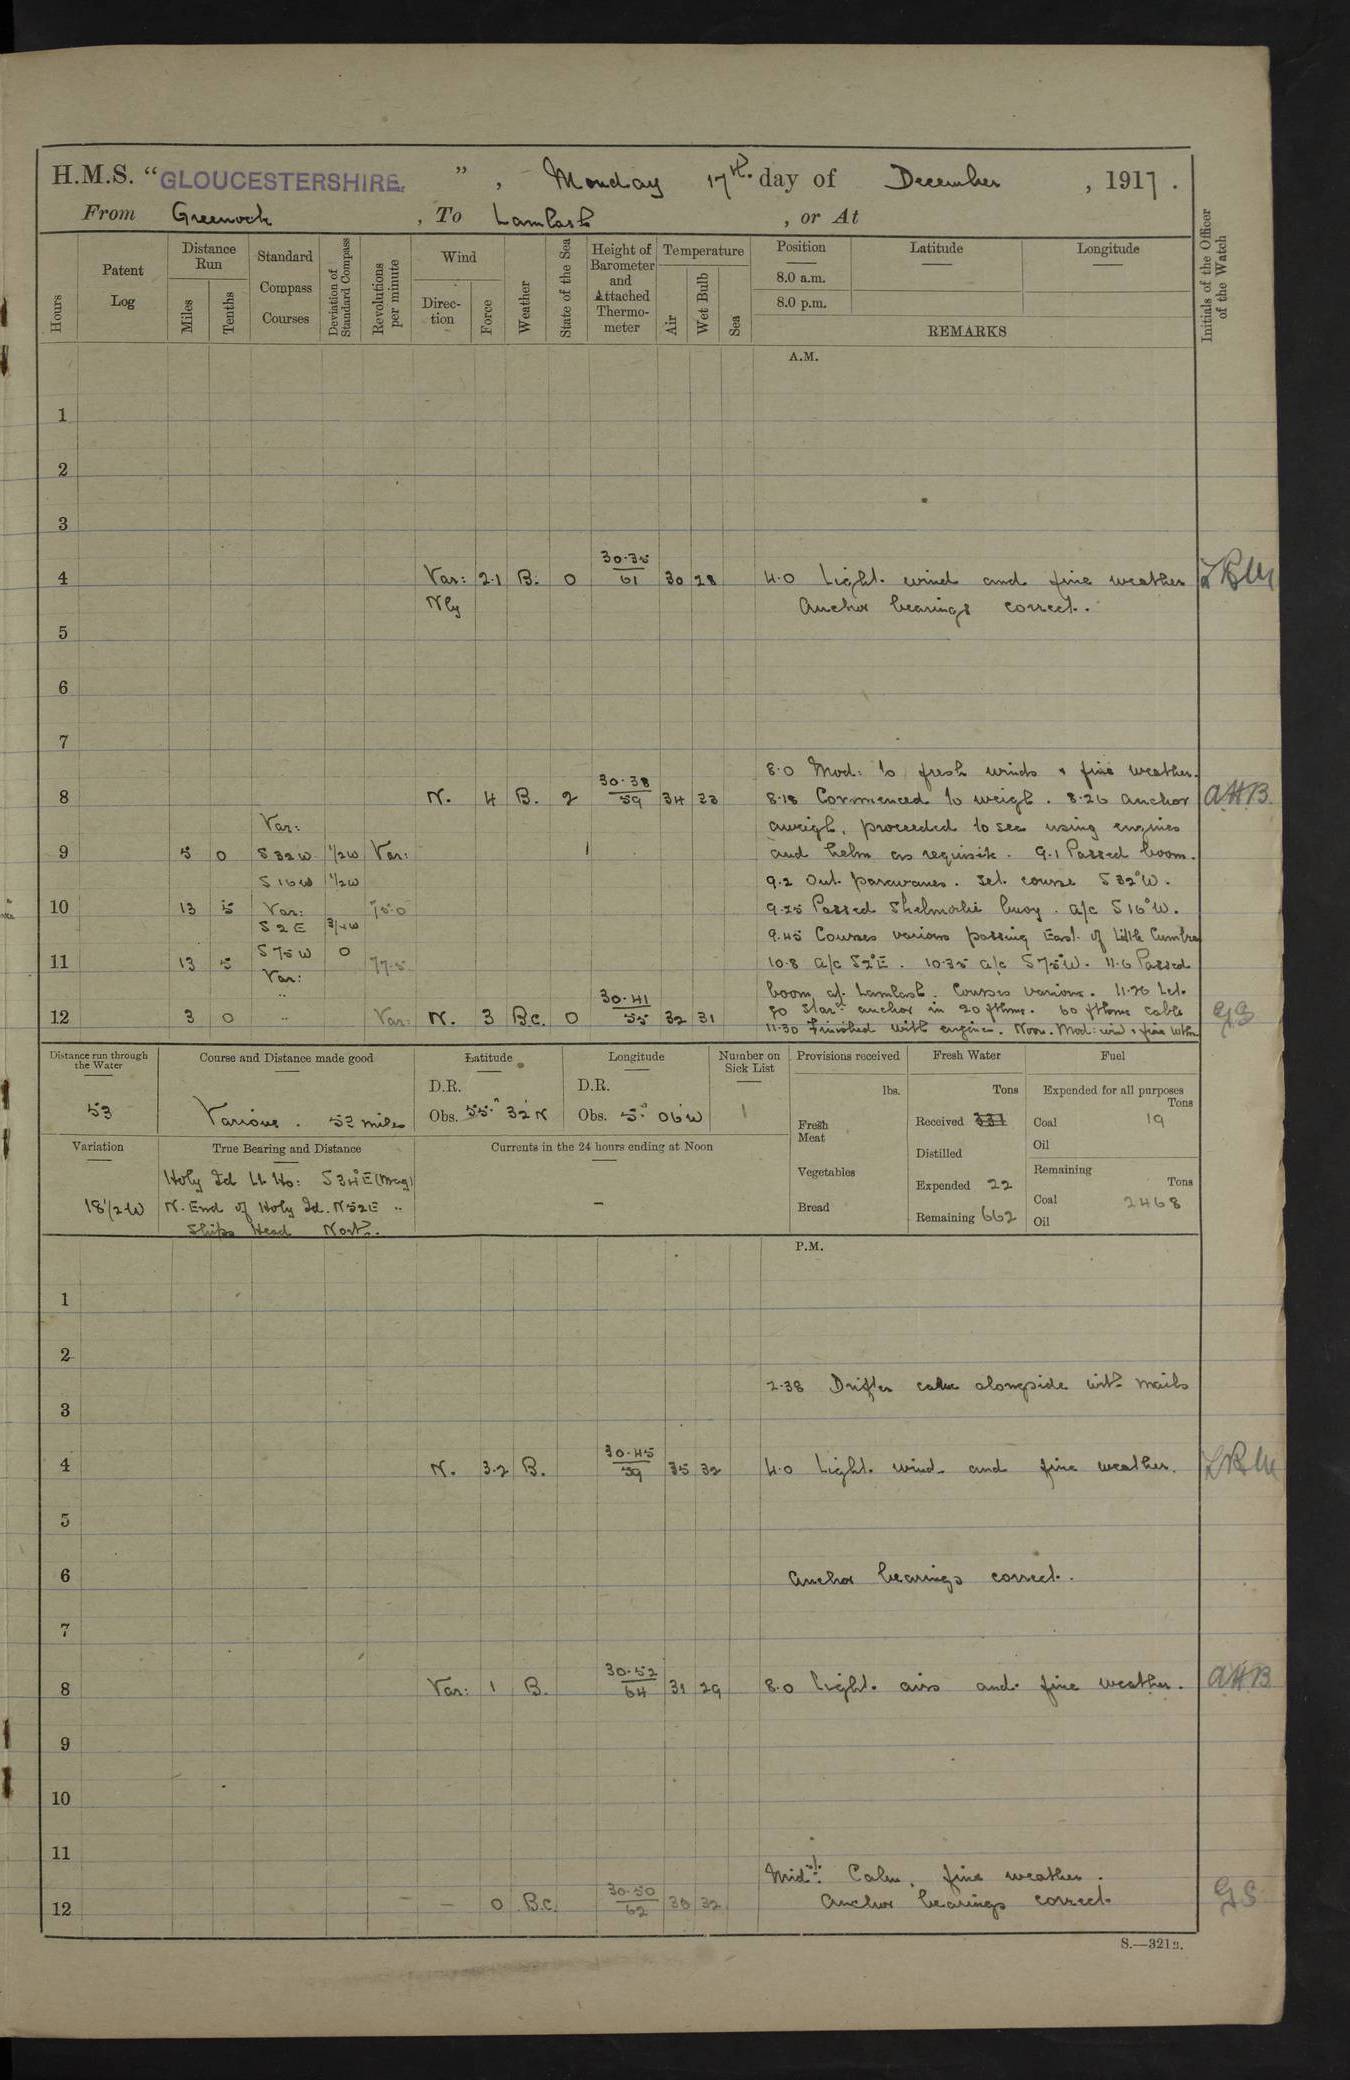 H.M.S. "GLOUCESTERSHIRE.", Monday 17th. day of December, 1917.
From Greenock, To Lamlash, or At
Hours
Patent Log
Distance Run
Miles
Tenths
Standard Compass Courses
Deviation of Standard Compass
Revolutions per minute
Wind
Direction
Force
Weather
State of the Sea
Height of Barometer and Attached Thermometer
Temperature
Air
Wet Bulb
Sea
Position
8.0 a.m.
8.0 p.m.
Latitude
Longitude
REMARKS
Initials of the Officer of the Watch
A.M.
1
2
3
4 Var: 2.1 B. 0 30.35/61 30 28 4.0 Light wind and fine weather
Nly Anchor bearings correct.
5
6
7
8.0 Mod: to fresh winds & fine weather.
8 N. 4 B. 2 30.38/59 34 33 8.18 Commenced to weigh. 8.26 Anchor A.H.B.
Var: aweigh, proceeded to sea using engines
9 5 0 S32W 1/2W Var: and helm as requisite. 9.1 Passed boom.
S16W 1/2W 9.2 Out paravanes. Set course S32°W.
10 13 5 Var: 75.0 9.25 Passed Skelmorlie buoy. A/c S16°W.
S2E 3/4W 9.45 Courses various passing East of Little Cumbrae
11 13 5 S75W 0 77.5 10.8 A/c S2°E. 10.35 A/c S75°W. 11.6 Passed
Var: boom at Lamlash. Courses various. 11.26 Let
12 3 0 " Var: N. 3 Bc. 0 30.41/55 32 31 go Star: anchor in 20 fthms. 60 fthoms cable G.S
11.30 Finished with engines. Noon. Mod: wind & fine wthr.
Distance run through the Water
53
Course and Distance made good
Various. 53 miles
Latitude
D.R.
Obs. 55° 32'N
Longitude
D.R.
Obs. 5° 06'W
Number on Sick List
1
Provisions received
lbs.
Fresh Meat
Vegetables
Bread
Fresh Water
Tons
Received 331
Distilled
Expended 22
Remaining 662
Fuel
Expended for all purposes
Tons
Coal 19
Oil
Remaining
Tons
Coal 2468
Oil
Variation
18 1/2 W
True Bearing and Distance
Holy Id Lt Ho: S34°E (Mag)
N. End of Holy Id. N52E "
Ships Head North.
Currents in the 24 hours ending at Noon
–
P.M.
1
2
2.38 Drifter came alongside with mails
3
4 N. 3.2 B. 30.45/59 35 32 4.0 Light wind and fine weather.
5
6 Anchor bearings correct.
7
8 Var: 1 B. 30.52/64 31 29 8.0 Light airs and fine weather. A.H.B
9
10
11
Midt. Calm, fine weather.
12 – 0 B.c. 30.50/62 32 Anchor bearings correct G.S
S.—321a.